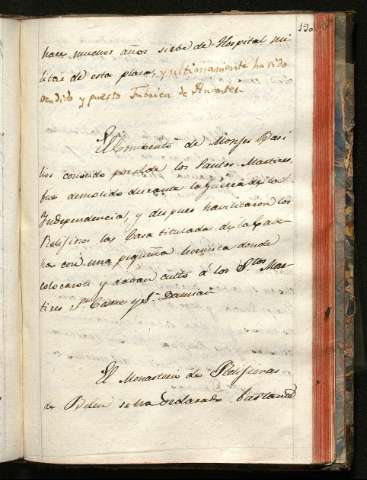 hace muchos años sirbe de Hospital mi
litar de esta plaza, y ultimamente ha sido
vendido y puesto Fabrica de
El Combento de Monjes Basi
lios conocido por el de los Santos Martires
fue demolido durante la Guerra de la
Independencia, y despues havilitaron los
Relijiosos la Casa titulada de la
ha con una pequeña hermita donde
colocaron y davan culto á los Stos Mar
tires Sn Cosme y Sn Damian
El Monasterio de Relijiosas
de Belen se ha declarado